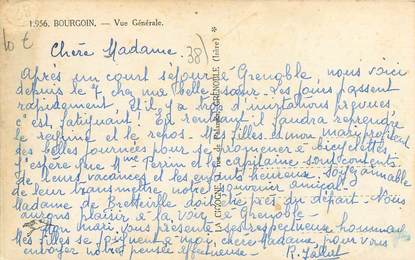 1.956. BOURGOIN. — Vue Générale.
10 €
38
Chère Madame.
Après un court séjour à Grenoble, nous voici
depuis le 7 chez ma belle sœur. Les jours passent
rapidement, et il y a trop d'invitations prévues,
c'est fatiguant! En rentrant il faudra reprendre
le régime et le repos. Mes filles et mon mari profitent
des belles journées pour se promener à bicyclette.
J'espère que Mme Perrin et le capitaine sont contents
de leurs vacances et les enfants heureux. Soyez aimable
de leur transmettre notre souvenir amical.
Madame de Bretteville doit être près du départ. Nous
aurons plaisir à la voir à Grenoble.
Mon mari vous présente ses respectueux hommages
Mes filles se joignent à moi, chère Madame, pour vous
envoyer notre pensée affectueuse.
R. Fallet
LA CIGOGNE, rue de GRENOBLE (Isère)